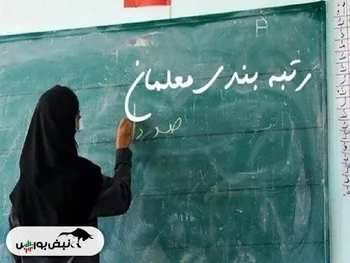 رتبه بندی معلمان
نبض بورس